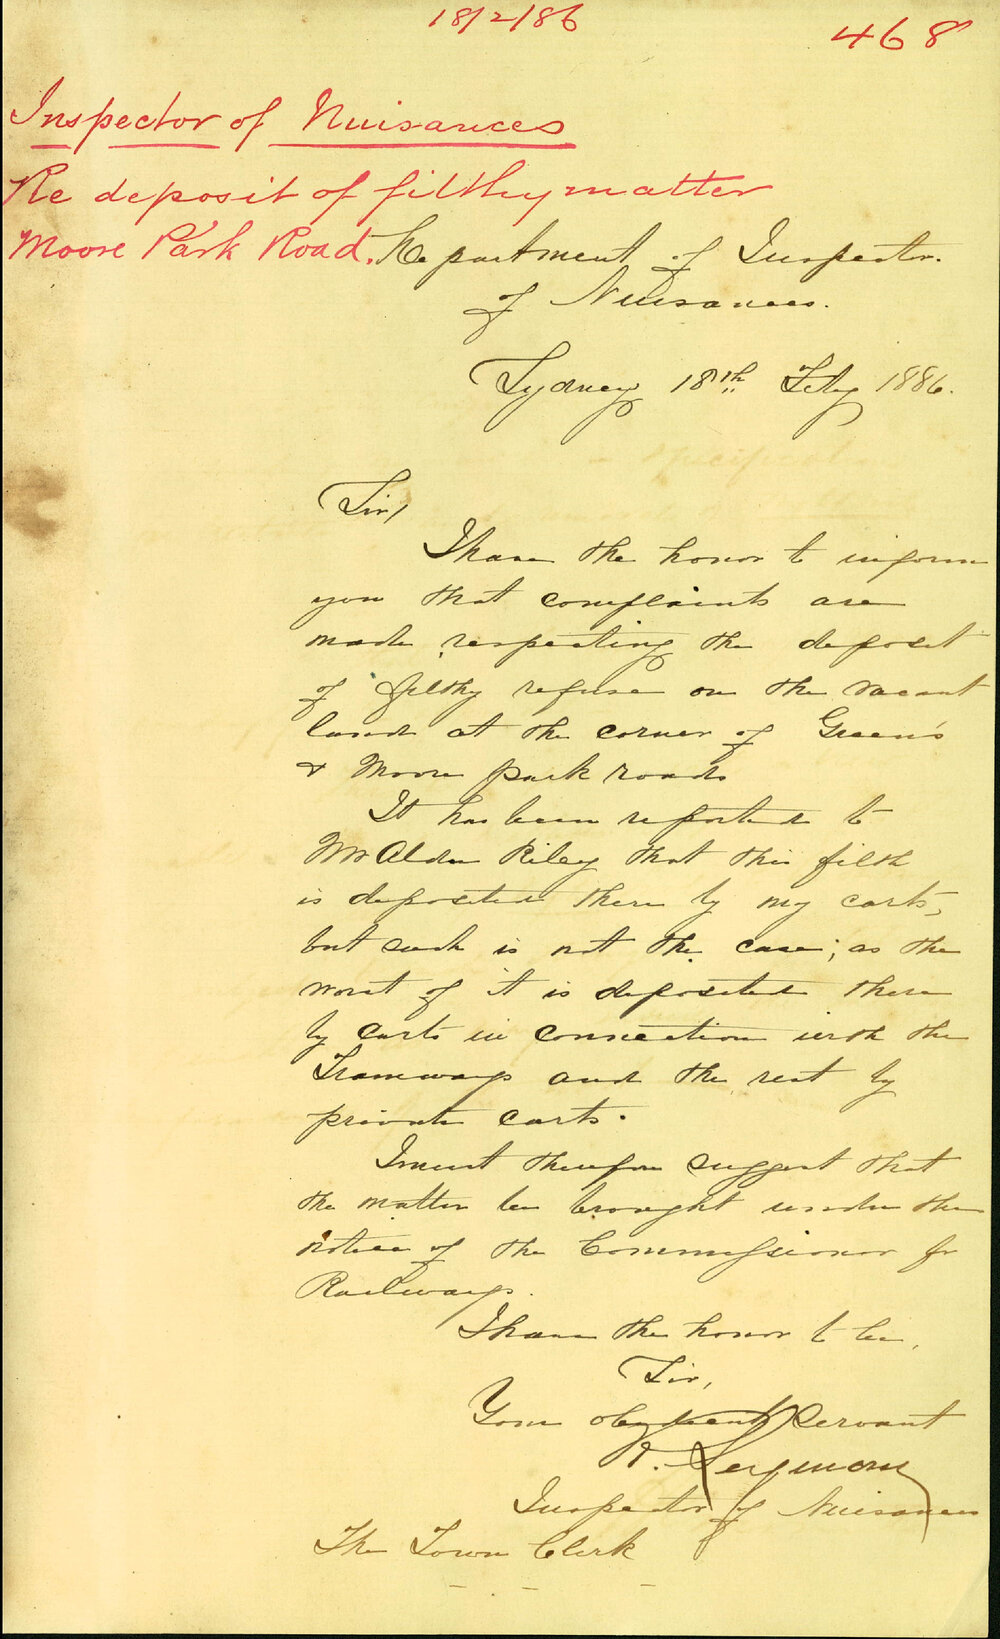 18/2/86
468
Inspector of Nuisances
Re deposit of filthy matter
Moore Park Road.
Department of Inspector
of Nuisances.
Sydney 18th Feby 1886.
Sir,
I have the honor to inform
you that complaints are
made respecting the deposit
of filthy refuse on the vacant
land at the corner of Green's
& Moore park roads
It has been reported to
Mr Aldn Riley that this filth
is deposited there by my carts,
but such is not the case; as the
worst of it is deposited there
by carts in connection with the
Tramways and the rest by
private carts.
I must therefore suggest that
the matter be brought under the
notice of the Commissioner for
Railways.
I have the honor to be,
Sir,
Your obedient Servant
Seymour
Inspector of Nuisances
The Town Clerk